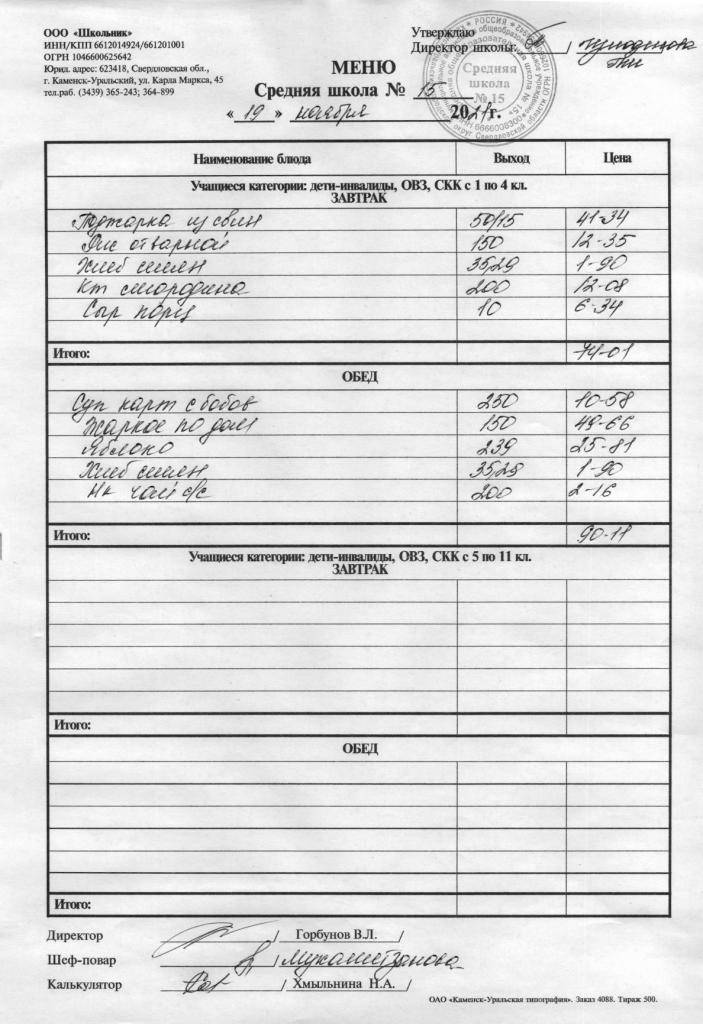 ООО «Школьник»
ИНН/КПП 6612014924/661201001
ОГРН 1046600625642
Юрид. адрес: 623418, Свердловская обл.,
г. Каменск-Уральский, ул. Карла Маркса, 45
тел.раб. (3439) 365-243; 364-899
Утверждаю
Директор школы:
МЕНЮ
Средняя школа № 15
« 19 » ноября 2021г.
РОССИЯ
Средняя
школа
№ 15
Наименование блюда Выход Цена
Учащиеся категории: дети-инвалиды, ОВЗ, СКК с 1 по 4 кл.
ЗАВТРАК
Поджарка из свин 50/15 41-34
Рис отварной 150 12-35
Хлеб 35,29 1-90
Кт смородина 200 12-08
Сыр порц 10 6-34
Итого: 74-01
ОБЕД
Суп карт с бобов 250 10-58
Жаркое по дом 150 49-66
Яблоко 239 25-81
Хлеб 35,29 1-90
Нк чай с/с 200 2-16
Итого: 90-11
Учащиеся категории: дети-инвалиды, ОВЗ, СКК с 5 по 11 кл.
ЗАВТРАК
Итого:
ОБЕД
Итого:
Директор / Горбунов В.Л. /
Шеф-повар / Мухаметзанова
Калькулятор / Хмыльнина Н.А. /
ОАО «Каменск-Уральская типография». Заказ 4088. Тираж 500.